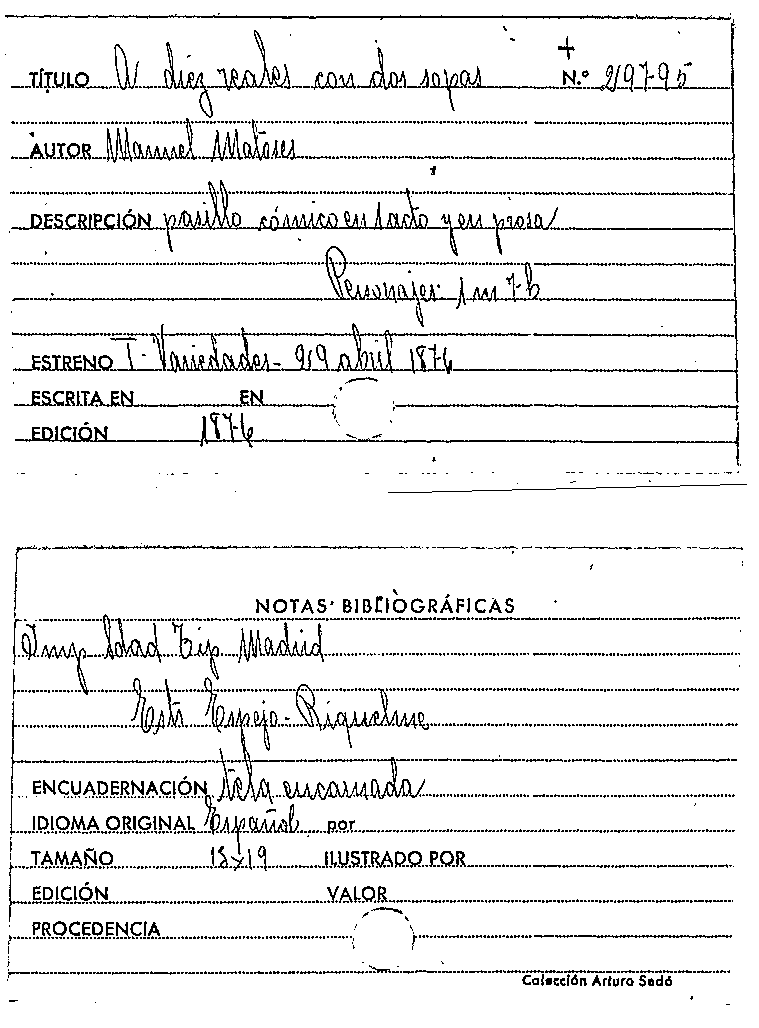 TÍTULO A diez reales con dos sopas N.º 29795
AUTOR Manuel Matoses
DESCRIPCIÓN pasillo cómico en 1 acto y en prosa
Personajes: 1 m 7 h
ESTRENO T. Variedades - 29 abril 1876
ESCRITA EN EN
EDICIÓN 1876
NOTAS BIBLIOGRÁFICAS
Imp Sdad Tip Madrid
Estr Espejo-Riquelme
ENCUADERNACIÓN tela encarnada
IDIOMA ORIGINAL Español por
TAMAÑO 13x19 ILUSTRADO POR
EDICIÓN VALOR
PROCEDENCIA
Colección Arturo Sedó